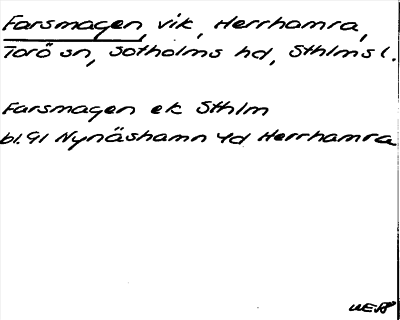 Farsmagen, vik, Herrhamra,
Torö sn, Sotholms hd, Sthlms l.
Farsmagen ek Sthlm
bl. 91 Nynäshamn 4d Herrhamra